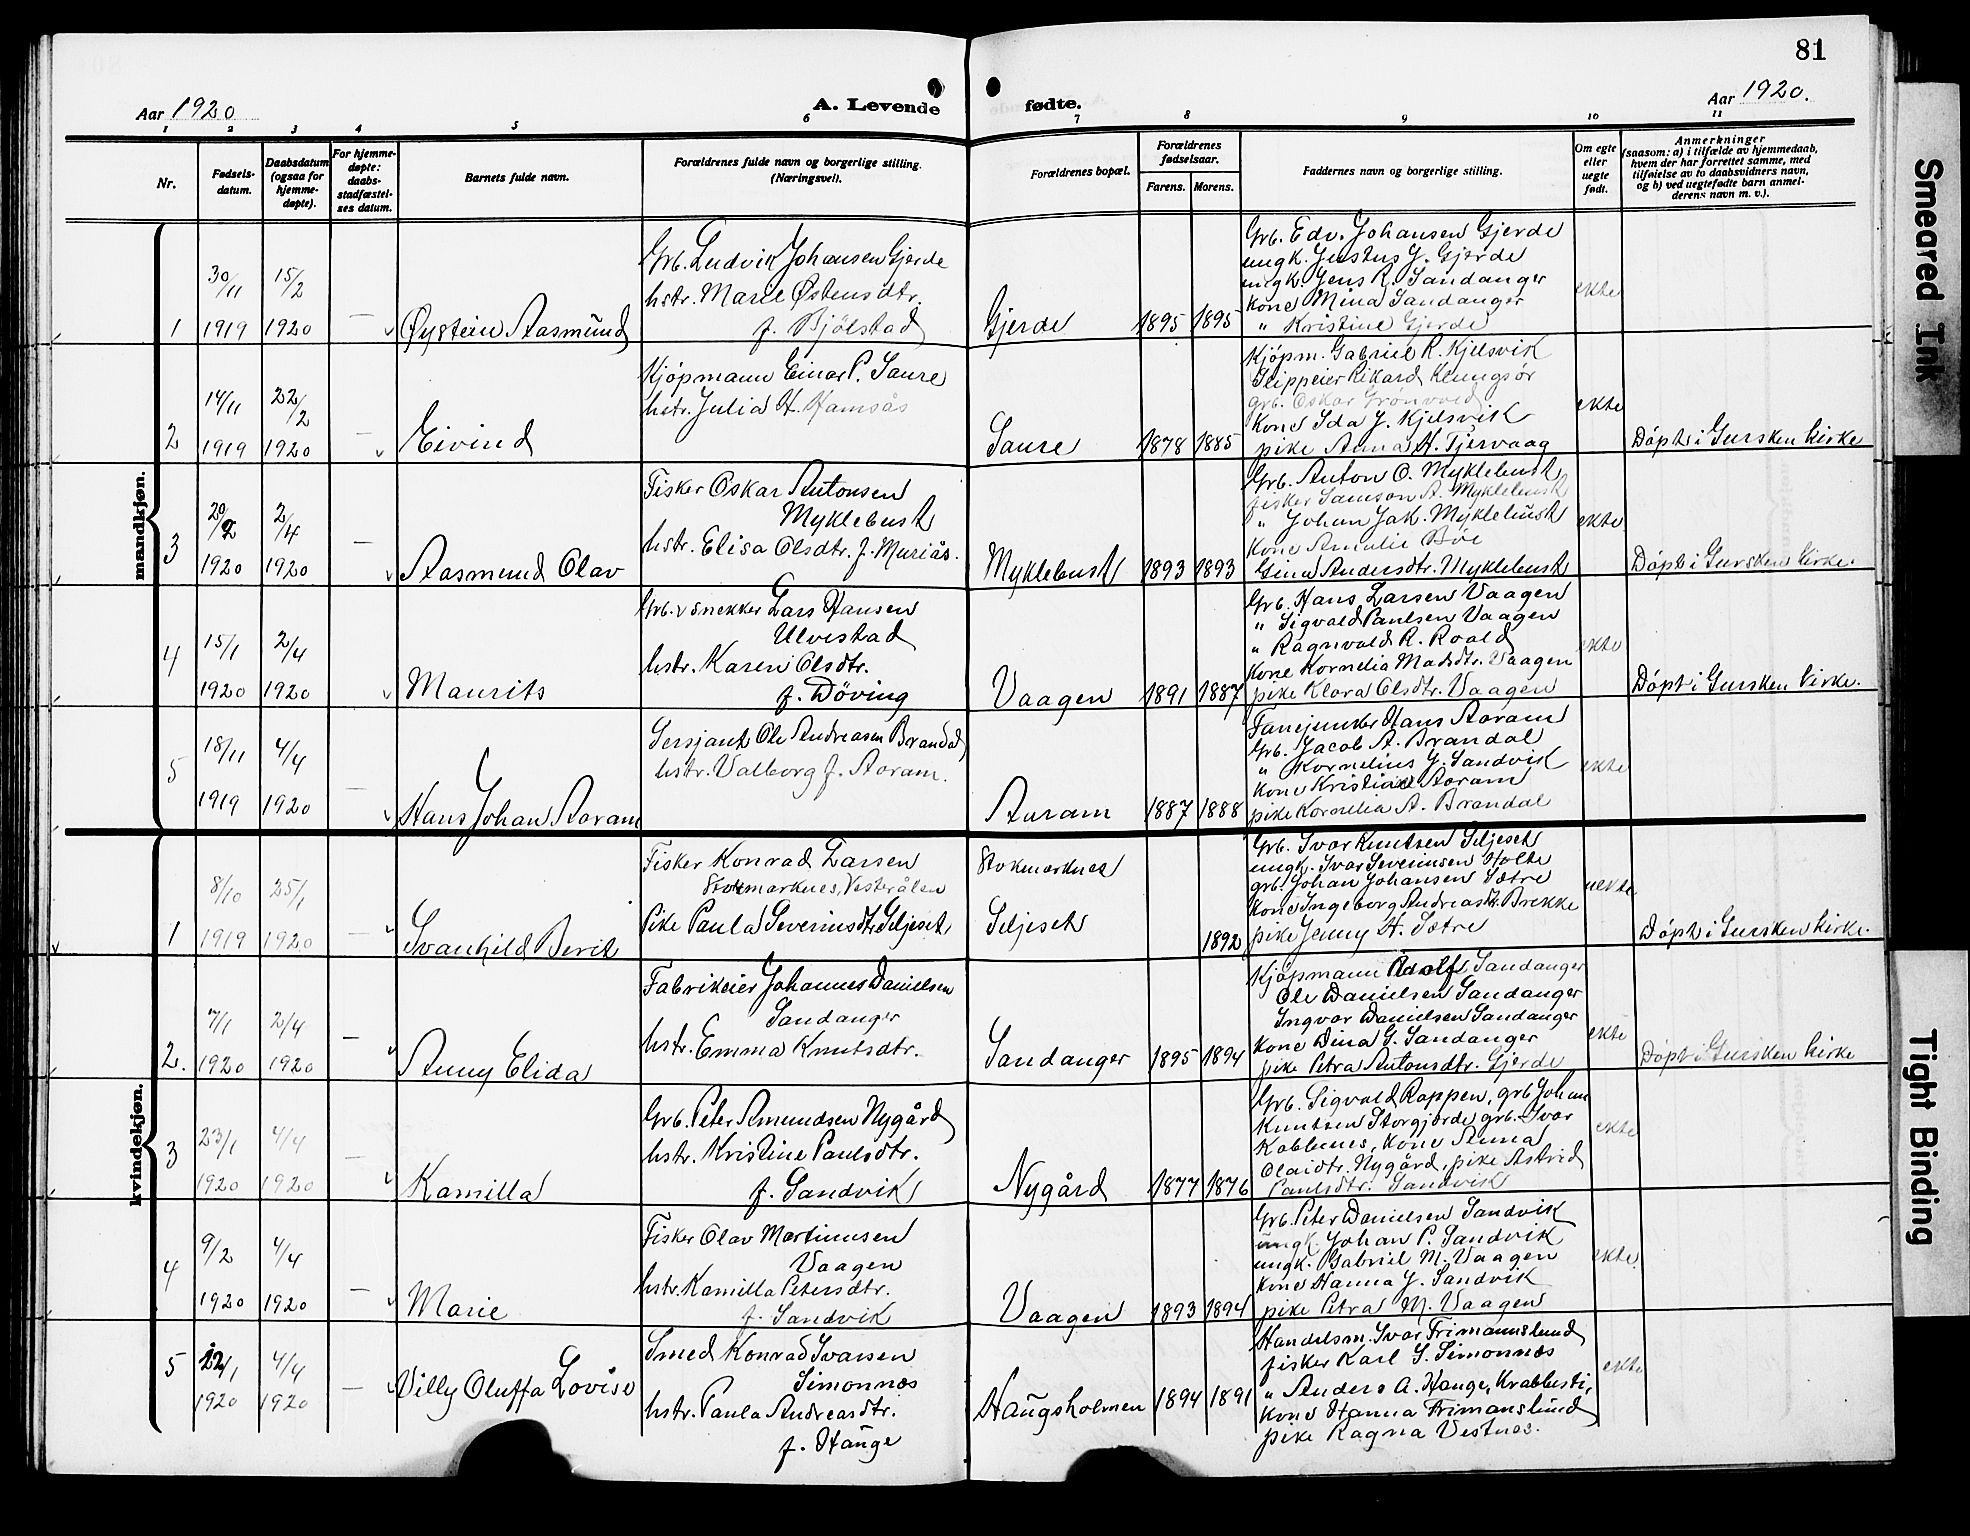 81
Aar 1920
A. Levende
fødte.
Aar 1920.
1 2 3 4 5 6 7 8 9 10 11
Nr.
Fødsels-
datum.
Daabsdatum
(ogsaa for
hjemme-
døpte).
For hjemme-
døpte:
daabs-
stadfæstel-
ses datum.
Barnets fulde navn.
Forældrenes fulde navn og borgerlige stilling.
(Næringsvei).
Forældrenes bopæl.
Forældrenes
fødselsaar.
Farens. Morens.
Faddernes navn og borgerlige stilling.
Om egte
eller
uegte
født.
Anmerkninger
(saasom: a) i tilfælde av hjemmedaab,
hvem der har forrettet samme, med
tilføielse av to daabsvidners navn,
og b) ved uegtefødte barn anmel-
derens navn m. v.).
mandkjøn.
1
30/11
1919
15/2
1920
—
Øystein Aasmund
Grb. Ludvik Johansen Gjerde
hstr. Marie Østensdtr.
f. Bjølstad
Gjerde
1895 1895
Grb. Edv. Johansen Gjerde
ungk. Justus J. Gjerde
ungk. Jens R. Sandanger
Kone Mina Sandanger
" Kristine Gjerde
ekte
2
14/11
1919
22/2
1920
—
Eivind
Kjöpmann Einar P. Saure
hstr. Julia H. Hamsås
Saure
1878 1885
Kjöpm. Gabriel R. Kjelsvik
Slippeier Rikard Klungsør
grb. Oskar Grønvold
Kone Ida J. Kjelsvik
pike Anna H. Tjervaag
ekte
Döpt i Gursken kirke
3
20/2
1920
2/4
1920
—
Aasmund Olav
Fisker Oskar Antonsen
Myklebust
hstr. Elisa Olsdtr. f. Muriås.
Myklebust
1893 1893
Grb. Anton O. Myklebust
fisker Samson A. Myklebust
" Johan Jak. Myklebust
Kone Amalie Böe
Gina Andersdtr. Myklebust
ekte
Döpt i Gursken kirke.
4
15/1
1920
2/4
1920
Maurits
Grb. v snekker Lars Hansen
Ulvestad
hstr. Karen Olsdtr.
f. Döving
Vaagen
1891 1887
Grb. Hans Larsen Vaagen
" Sigvald Paulsen Vaagen
" Ragnvald R. Roald
Kone Kornelia Madsdtr. Vaagen
pike Klara Olsdtr. Vaagen
ekte
Döpt i Gursken kirke.
5
18/11
1919
4/4
1920
—
Hans Johan Aaram
Sersjant Ole Andreasen Brandal
hstr. Valborg f. Aaram.
Aaram
1887 1888
Fanejunker Hans Aaram
Grb. Jacob A. Brandal
" Kornelius J. Sandvik
Kone Kristine Aaram
pike Kornelia A. Brandal
ekte
kvindekjøn.
1
8/10
1919
25/1
1920
—
Svanhild Berit
Fisker Konrad Larsen
Stokmarknes, Vesterålen
Pike Paula Severinsdtr. Seljeset
Stokmarknes
Seljeset
1892
Grb. Ivar Knutsen Seljeset
ungk. Ivar Severinsen Holte
grb. Johan Johansen Sætre
Kone Ingeborg Andreasdtr. Brekke
pike Jenny H. Sætre
uekte
Döpt i Gursken kirke.
2.
7/1
1920
2/4
1920
—
Anny Elida
Fabrikeier Johannes Danielsen
Sandanger
hstr. Emma Knutsdtr.
Sandanger
1895 1894
Kjöpmann Adolf Sandanger
Ole Danielsen Sandanger
Ingvar Danielsen Sandanger
Kone Dina G. Sandanger
pike Petra Antonsdtr. Gjerde
ekte
Döpt i Gursken kirke
3
23/1
1920
4/4
1920
—
Kamilla
Grb. Peter Amundsen Nygård
hstr. Kristine Paulsdtr.
f. Sandvik
Nygård
1877 1876
Grb. Sigvald Rappen, grb Johan
Knutsen Storgjerde, grb. Ivar
Kobbenes, Kone Anna
Olaidtr. Nygård, pike Astrid
Paulsdtr. Sandvik
ekte
4
9/2
1920
4/4
1920
—
Marie
Fisker Olav Martinusen
Vaagen
hstr. Kamilla Petersdtr.
f. Sandvik
Vaagen
1893 1894
Grb. Peter Danielsen Sandvik
ungk. Johan P. Sandvik
ungk. Gabriel M. Vaagen
Kone Hanna J. Sandvik
pike Petra M. Vaagen
ekte.
5
1920
4/4
1920
—
Villy Oluffa Lovise
Smed Konrad Ivarsen
Simonnes
hstr. Paula Andreasdtr.
f. Hauge
Haugsholmen
1894 1891
Handelsm. Ivar Frimannslund
fisker Karl S. Simonnes
" Anders A. Hauge, Krabbesti,
Kone Hanna Frimanslund
pike Ragna Vestnes.
ekte
Smeared Ink
Tight Binding